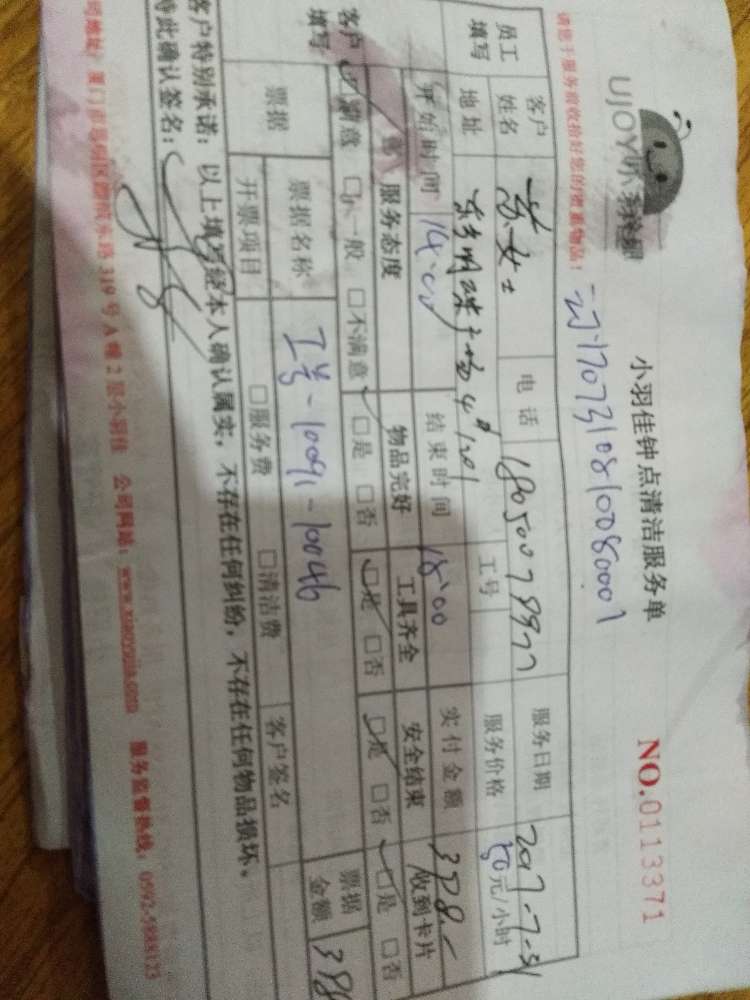 UJOY
小羽佳钟点清洁服务单
NO.0113371
请您于服务前收拾好您的贵重物品！
170731081008000
员工填写
客户姓名
苏女士
电话
服务日期
2017-7-31
地址
东方明珠广场4#1201
工号
服务价格
50元/小时
开始时间
14:00
结束时间
18:00
实付金额
378.-
客户填写
服务态度
物品完好
工具齐全
安全结束
收到卡片
□满意 □一般 □不满意
□是 □否
□是 □否
□是 □否
□是 □否
票据
票据名称
工号-10091-10046
票据金额
开票项目
□服务费
□清洁费
客户签名
客户特别承诺：以上填写经本人确认属实，不存在任何纠纷，不存在任何物品损坏。
特此确认签名：
319号A幢2层小羽佳 公司网站：www.xiaoyujia.com 服务监督热线：